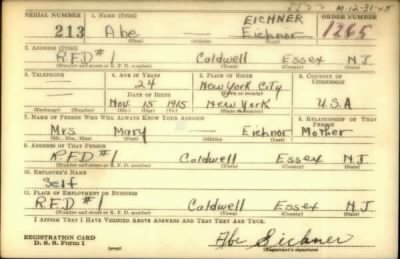 SERIAL NUMBER 1. NAME (Print) EICHNER ORDER NUMBER
213 Abe — Eichnor 1265
(First) (Middle) (Last)
2. ADDRESS (Print)
R.F.D #1 Caldwell Essex N.J.
(Number and street or R. F. D. number) (Town) (County) (State)
3. TELEPHONE 4. AGE IN YEARS 5. PLACE OF BIRTH 6. COUNTRY OF CITIZENSHIP
24 New York City
DATE OF BIRTH (Town or county)
Nov. 15 1915 New York U.S.A
(Exchange) (Number) (Mo.) (Day) (Yr.) (State or country)
7. NAME OF PERSON WHO WILL ALWAYS KNOW YOUR ADDRESS 8. RELATIONSHIP OF THAT PERSON
Mrs Mary — Eichnor Mother
(Mr., Mrs., Miss) (First) (Middle) (Last)
9. ADDRESS OF THAT PERSON
R.F.D #1 Caldwell Essex N.J.
(Number and street or R. F. D. number) (Town) (County) (State)
10. EMPLOYER'S NAME
Self
11. PLACE OF EMPLOYMENT OR BUSINESS
R.F.D #1 Caldwell Essex N.J.
(Number and street or R. F. D. number) (Town) (County) (State)
I AFFIRM THAT I HAVE VERIFIED ABOVE ANSWERS AND THAT THEY ARE TRUE.
REGISTRATION CARD
D. S. S. Form 1 (over) Abe Eichner
(Registrant's signature)